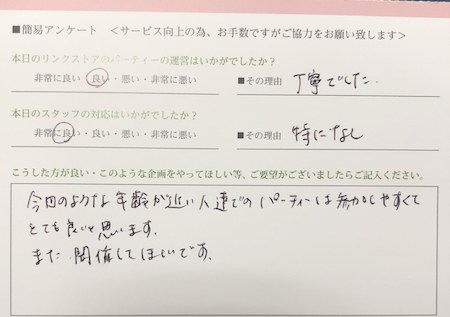 ■簡易アンケート　＜サービス向上の為、お手数ですがご協力をお願い致します＞
本日のリンクストアのパーティーの運営はいかがでしたか？
非常に良い・良い・悪い・非常に悪い　■その理由　丁寧でした.
本日のスタッフの対応はいかがでしたか？
非常に良い・良い・悪い・非常に悪い　■その理由　特になし
こうした方が良い・このような企画をやってほしい等、ご要望がございましたらご記入ください。
今回のような年齢が近い人達でのパーティーは参加しやすくて
とても良いと思います.
また開催してほしいです.